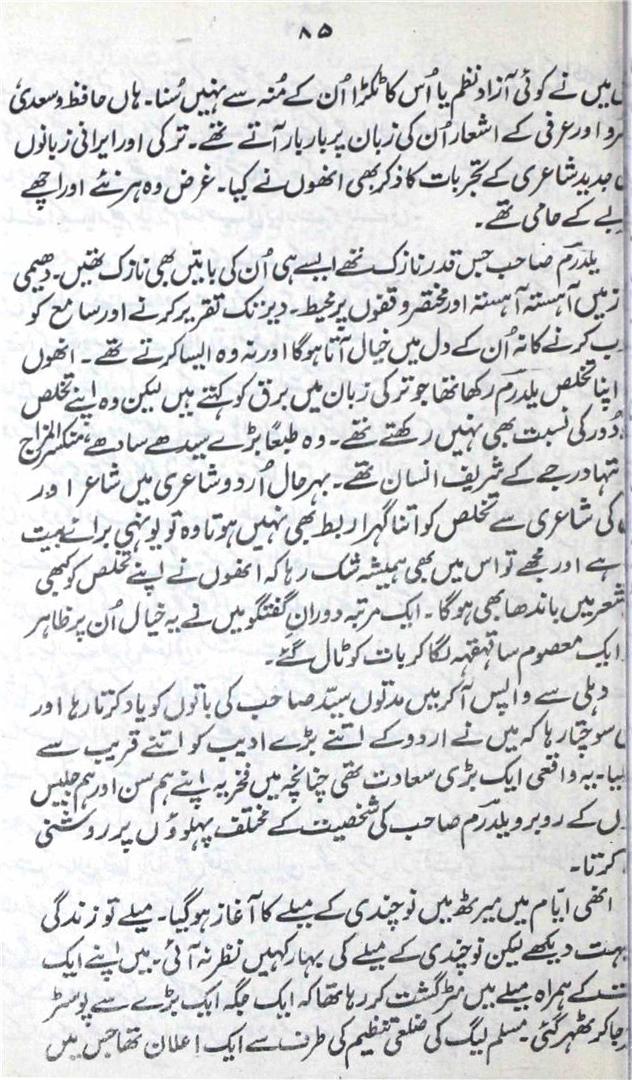 ۸۵
میں نے کوئی آزاد نظم یا اُس کا ٹکڑا اُن کے مُنہ سے نہیں سُنا۔ ہاں حافظ و سعدیؒ
اور عرفی کے اشعار اُن کی زبان پر بار بار آتے تھے۔ ترکی اور ایرانی زبانوں
جدید شاعری کے تجربات کا ذکر بھی انھوں نے کیا۔ غرض وہ ہر نئے اور اچھے
کے حامی تھے۔
یلدرم صاحب جس قدر نازک تھے ایسے ہی اُن کی باتیں بھی نازک تھیں۔ دھیمی
میں آہستہ آہستہ اور مختصر وقفوں پر محیط۔ دیر تک تقریر کرنے اور سامع کو
کرنے کا نہ اُن کے دل میں خیال آتا ہوگا اور نہ وہ ایسا کرتے تھے۔ انھوں
اپنا تخلص یلدرم رکھا تھا جو ترکی زبان میں برق کو کہتے ہیں لیکن وہ اپنے تخلص
دُور کی نسبت بھی نہیں رکھتے تھے۔ وہ طبعاً بڑے سیدھے سادھے، منکسرالمزاج
درجے کے شریف انسان تھے۔ بہرحال اُردو شاعری میں شاعر اور
کی شاعری سے تخلص کو اتنا گہرا ربط بھی نہیں ہوتا وہ تو یونہی برائے بیت
ہے اور مجھے تو اس میں بھی ہمیشہ شک رہا کہ انھوں نے اپنے تخلص کو کبھی
شعر میں باندھا بھی ہوگا۔ ایک مرتبہ دورانِ گفتگو میں نے یہ خیال اُن پر ظاہر
ایک معصوم سا قہقہہ لگا کر بات کو ٹال گئے۔
دہلی سے واپس آکر میں مدتوں سیّد صاحب کی باتوں کو یاد کرتا رہا اور
سوچتا رہا کہ میں نے اردو کے اتنے بڑے ادیب کو اتنے قریب سے
لیا۔ یہ واقعی ایک بڑی سعادت تھی چنانچہ میں فخریہ اپنے ہم سن اور ہم جلیس
کے روبرو یلدرم صاحب کی شخصیت کے مختلف پہلوؤں پر روشنی
کرتا۔
انھی ایّام میں میرٹھ میں نوچندی کے میلے کا آغاز ہوگیا۔ میلے تو زندگی
بہت دیکھے لیکن نوچندی کے میلے کی بہار کہیں نظر نہ آئی۔ میں اپنے ایک
کے ہمراہ میلے میں مٹرگشت کر رہا تھا کہ ایک جگہ ایک بڑے سے پوسٹر
جا کر ٹھہر گئی۔ مسلم لیگ کی ضلعی تنظیم کی طرف سے ایک اعلان تھا جس میں